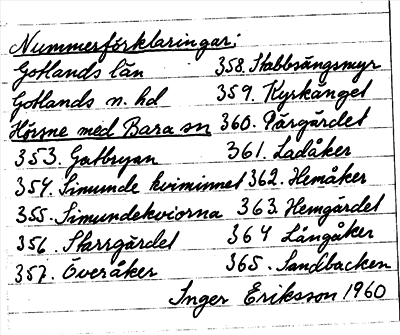 Nummerförklaringar:
Gotlands län 358. Stabbsängsmyr
Gotlands n. hd 359. Kyrkänget
Hörsne med Bara sn 360. Pärgärdet
353. Gatbryan 361. Ladåker
354. Simunde kviminnet 362. Hemåker
355. Simundekviorna 363. Hemgärdet
356. Starrgärdet 364 Långåker
357. Överåker 365. Sandbacken
Inger Eriksson 1960